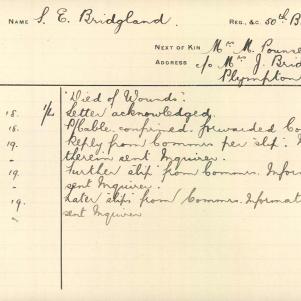 NAME S. E. Bridgland. REG., &C. 50th B
NEXT OF KIN Mrs M. Pounse
ADDRESS c/o Mrs J. Brid
Plympton
"Died of Wounds".
18. Letter acknowledged.
18. P/Cable. confirmed. forwarded Co
19. Reply from Commrs per slip. I
- therein sent Inquirer.
19. Further slip from Commrs. Infor
- sent Inquirer.
19. Later slips from Commrs. Informat
- sent Inquirer